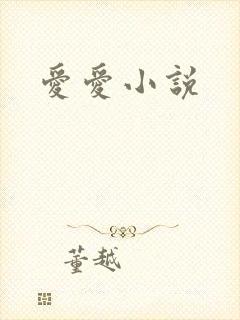 愛愛小説
董越